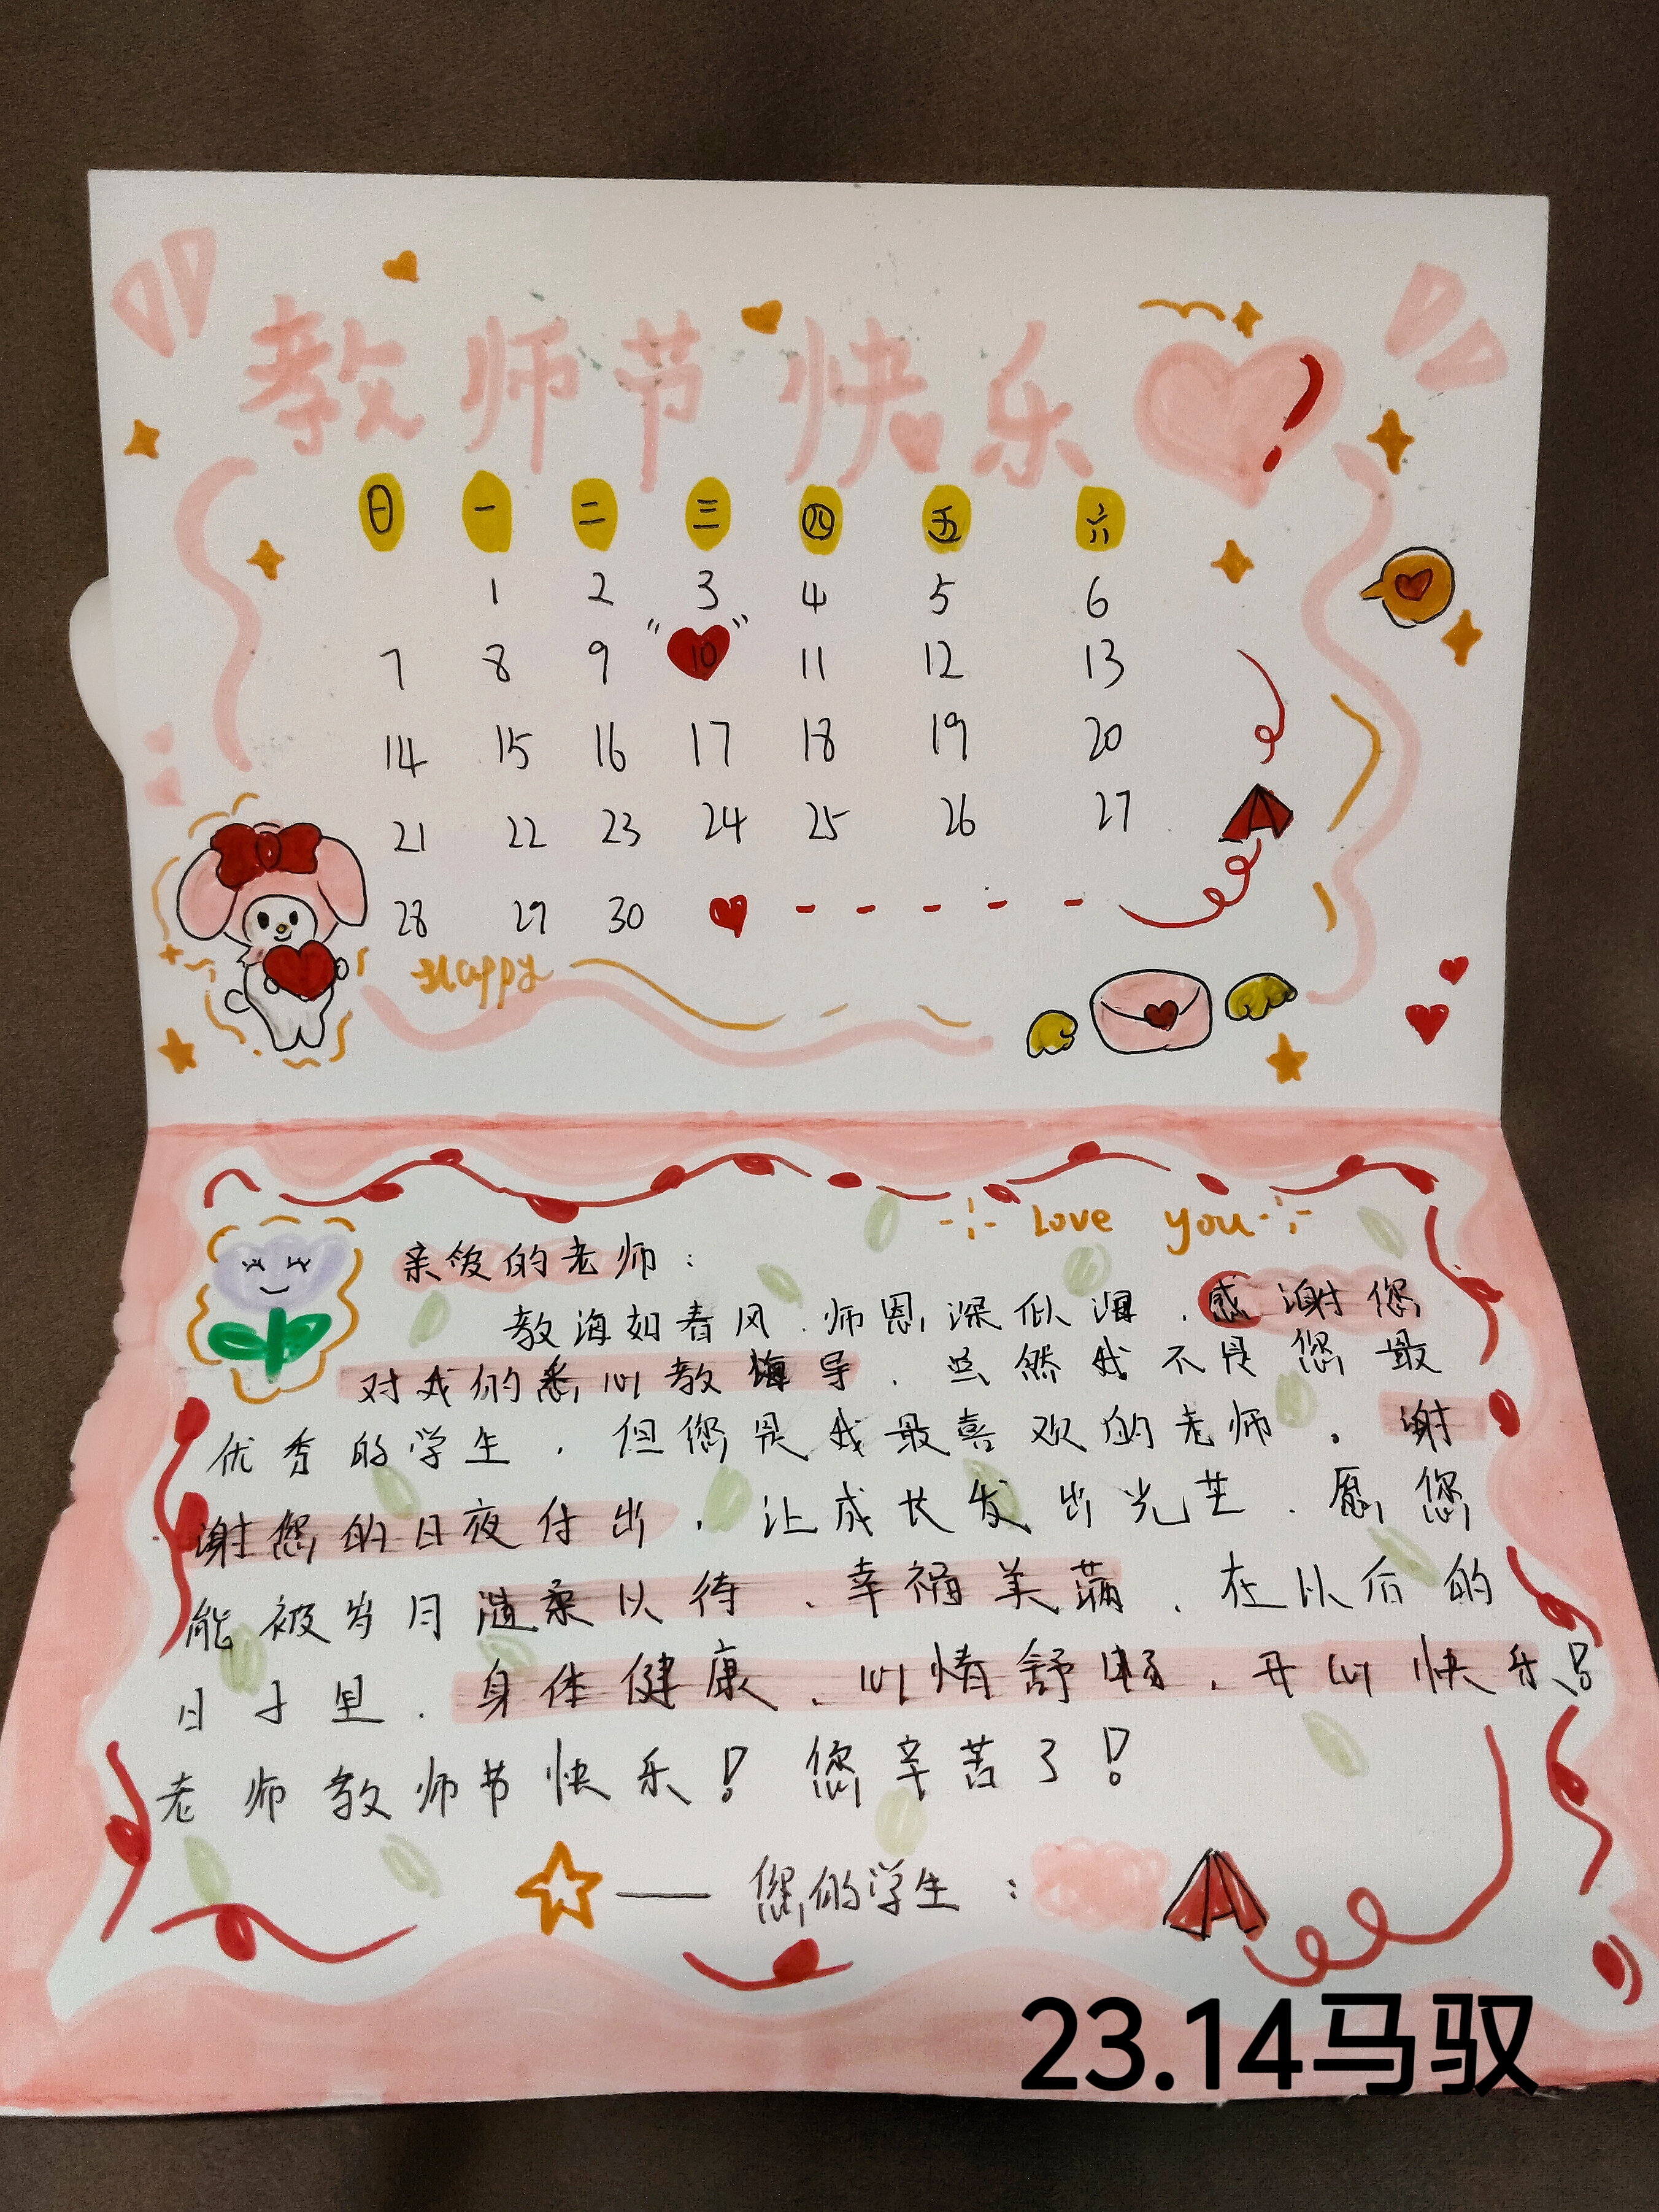 教师节快乐!
日 一 二 三 四 五 六
1 2 3 4 5 6
7 8 9 10 11 12 13
14 15 16 17 18 19 20
21 22 23 24 25 26 27
28 29 30
Happy
Love you
亲爱的老师：
教海如春风，师恩深似海，感谢您
对我的悉心教诲导，虽然我不是您最
优秀的学生，但您是我最喜欢的老师。谢
谢您的日夜付出，让成长发出光芒，愿您
能被岁月温柔以待，幸福美满，在以后的
日子里，身体健康，心情舒畅，开心快乐!
老师教师节快乐！您辛苦了！
——您的学生：
23.14马驭